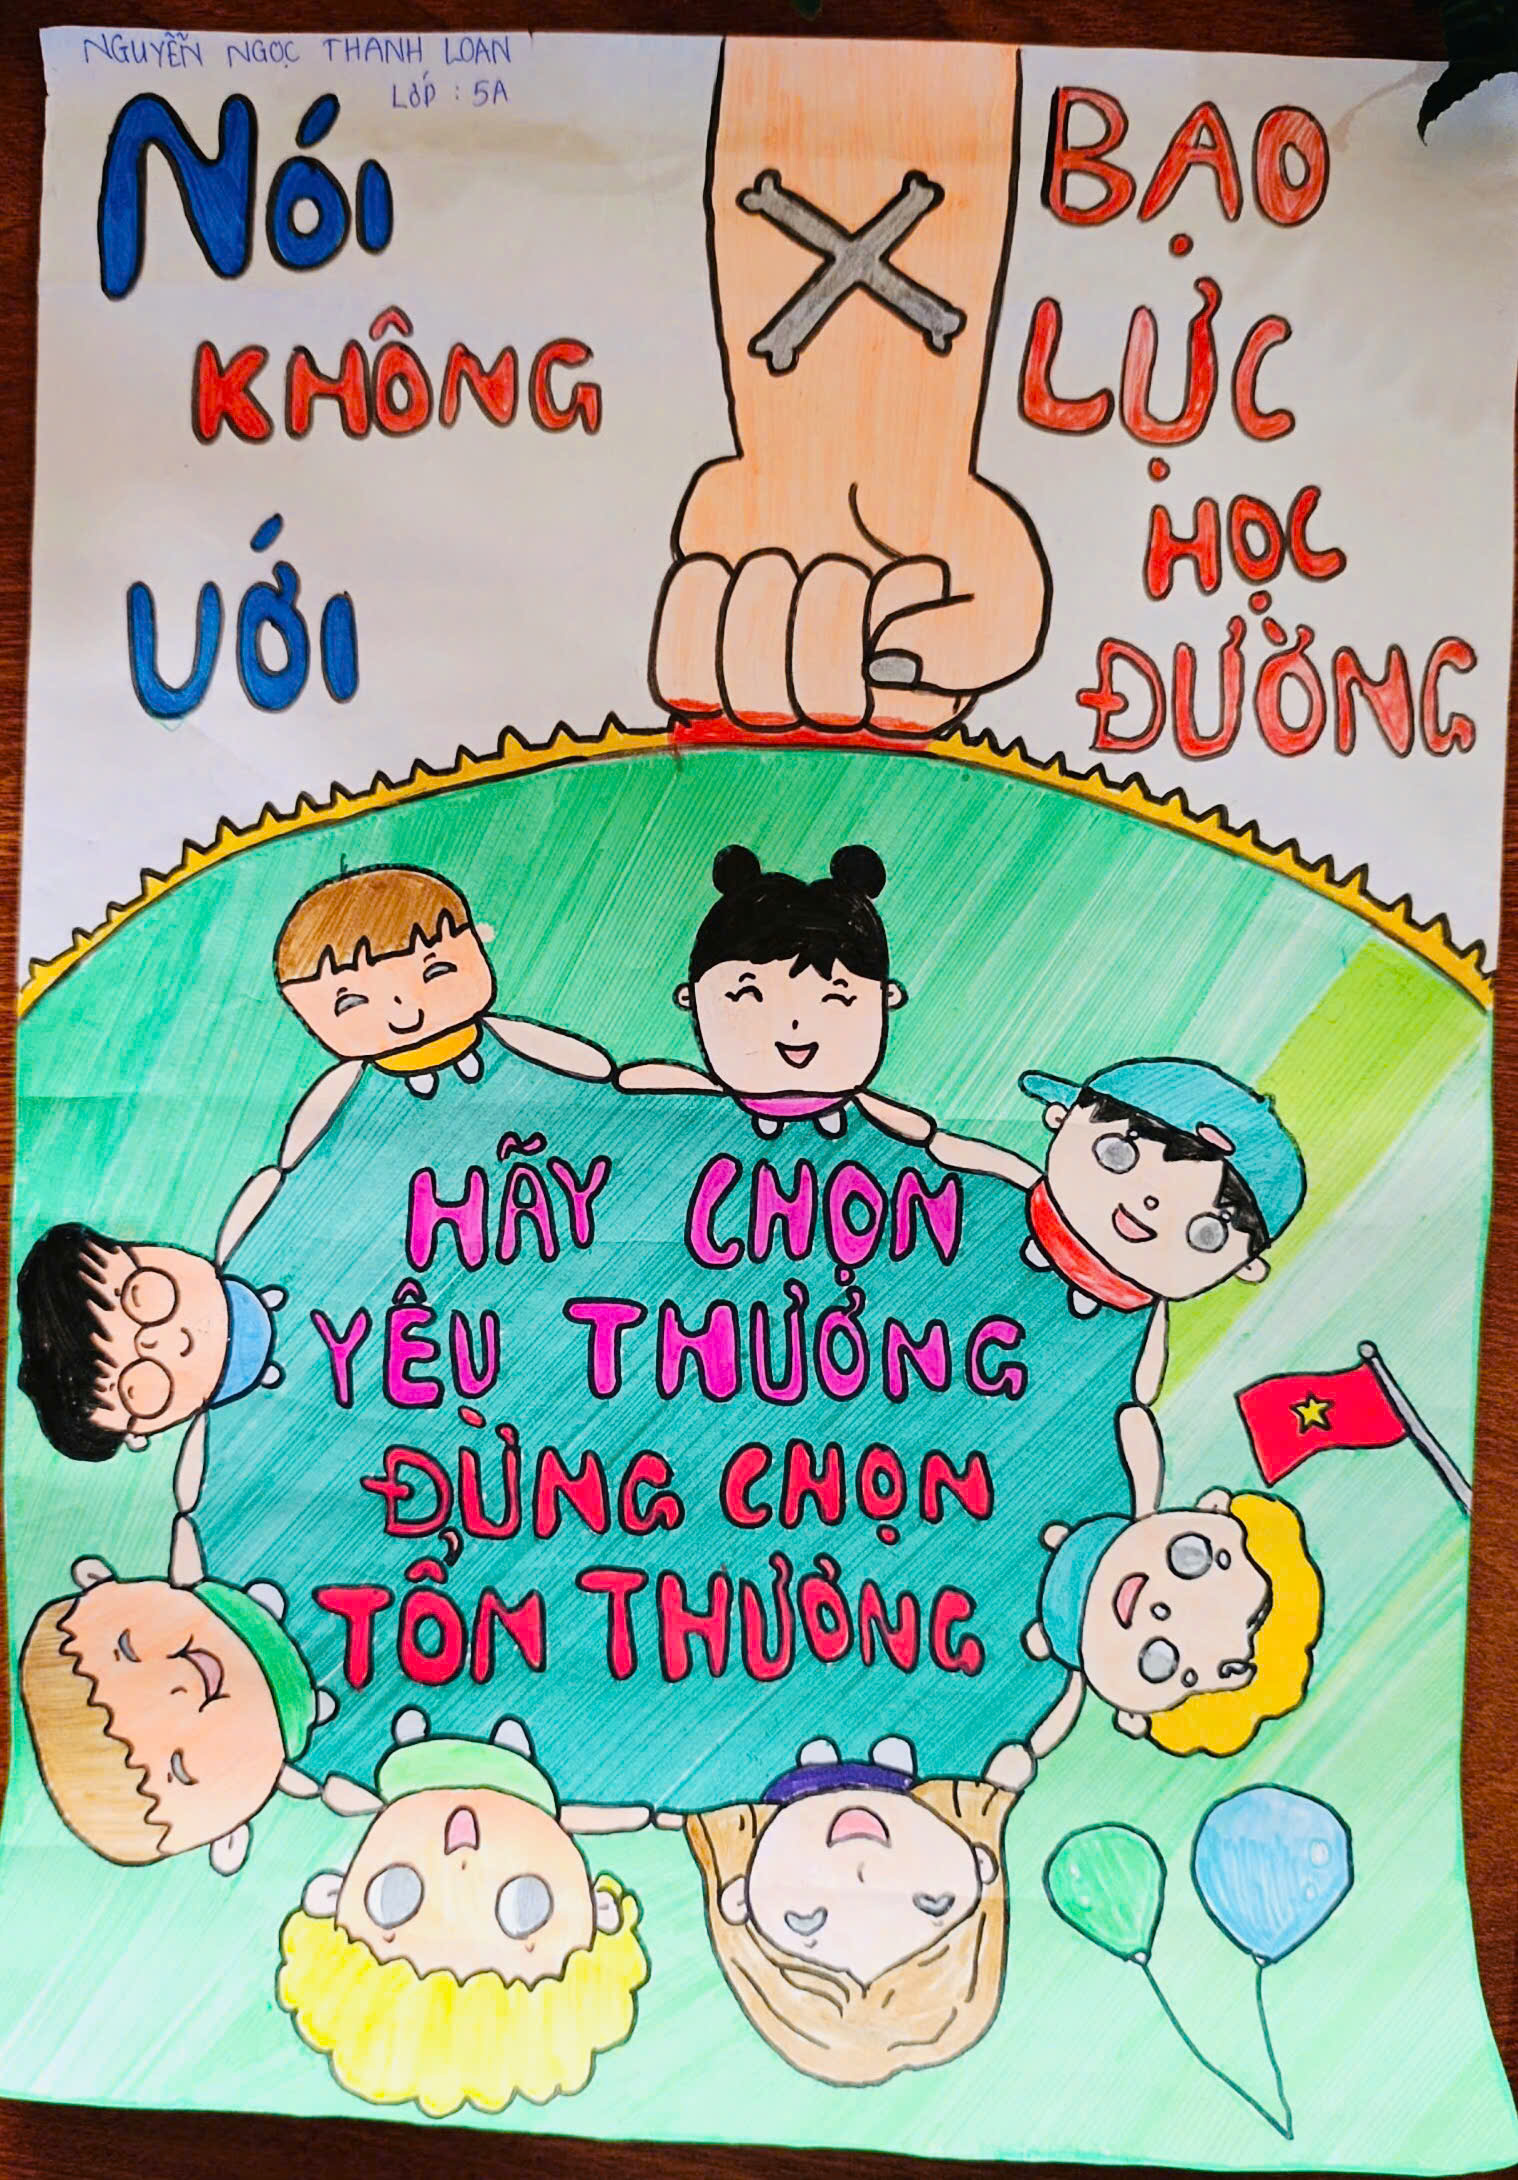 NGUYỄN NGỌC THANH LOAN
LỚP : 5A
NÓI
KHÔNG
VỚI
BẠO
LỰC
HỌC
ĐƯỜNG
HÃY CHỌN
YÊU THƯƠNG
ĐỪNG CHỌN
TỔN THƯƠNG